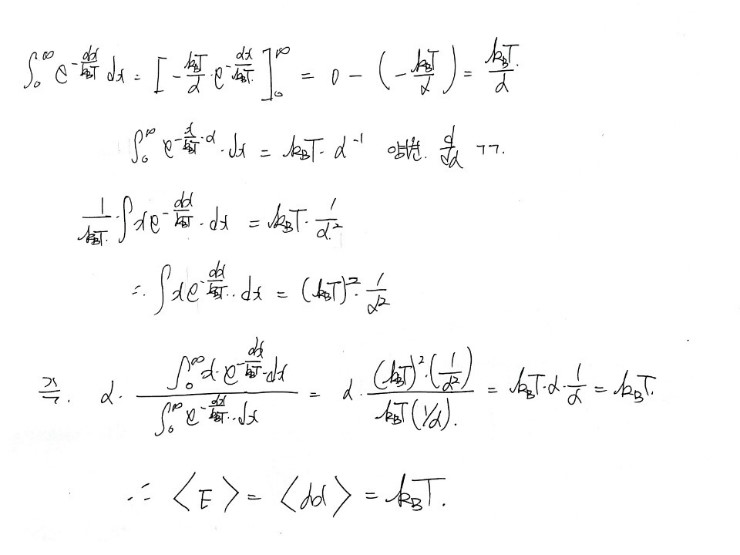 ∫₀^∞ e^{-αx/k_BT} dx = [-k_BT/α · e^{-αx/k_BT}]₀^∞ = 0 - (-k_BT/α) = k_BT/α
∫₀^∞ e^{-x/k_BT·α} · dx = k_BT · α⁻¹ 양변. d/dα ㄱㄱ.
1/k_BT · ∫ x e^{-αx/k_BT} · dx = k_BT · 1/α²
∴ ∫ x e^{-αx/k_BT} · dx = (k_BT)² · 1/α²
즉. α · ∫₀^∞ x · e^{-αx/k_BT} · dx / ∫₀^∞ e^{-αx/k_BT} · dx = α · (k_BT)² · (1/α²) / k_BT (1/α). = k_BT · α · 1/α = k_BT.
∴ <E> = <αx> = k_BT.